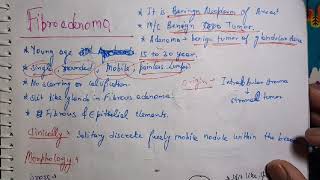 Fibroadenoma
* It is Benign Neoplasm of Breast
* M/c Benign Tumor
* Adenoma → benign tumor of glandular
* Young age 15 to 30 year
* Single, rounded, Mobile, Painless lumps
* No scarring or calcification.
Intralobular stroma
→ stromal tumor
* Slit like glands in Fibrous adenoma
* Fibrous & Epithelial elements.
Clinically → Solitary discrete freely mobile nodule within the breast
Morphology →